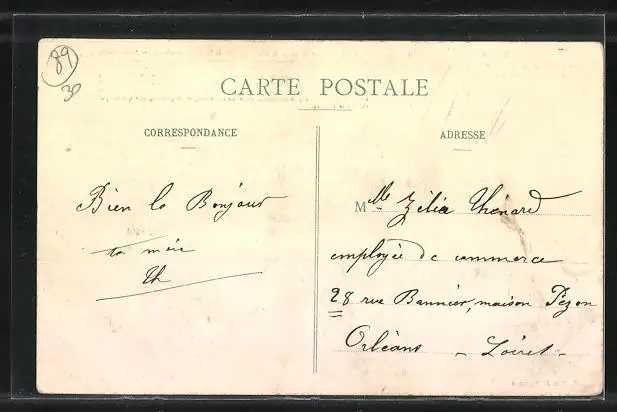 89
30
CARTE POSTALE
CORRESPONDANCE
Bien le Bonjour
ta mère
Th
ADRESSE
Mlle Zélia Thénard
employée de commerce
28 rue Bannier, maison Pézon
Orléans - Loiret -